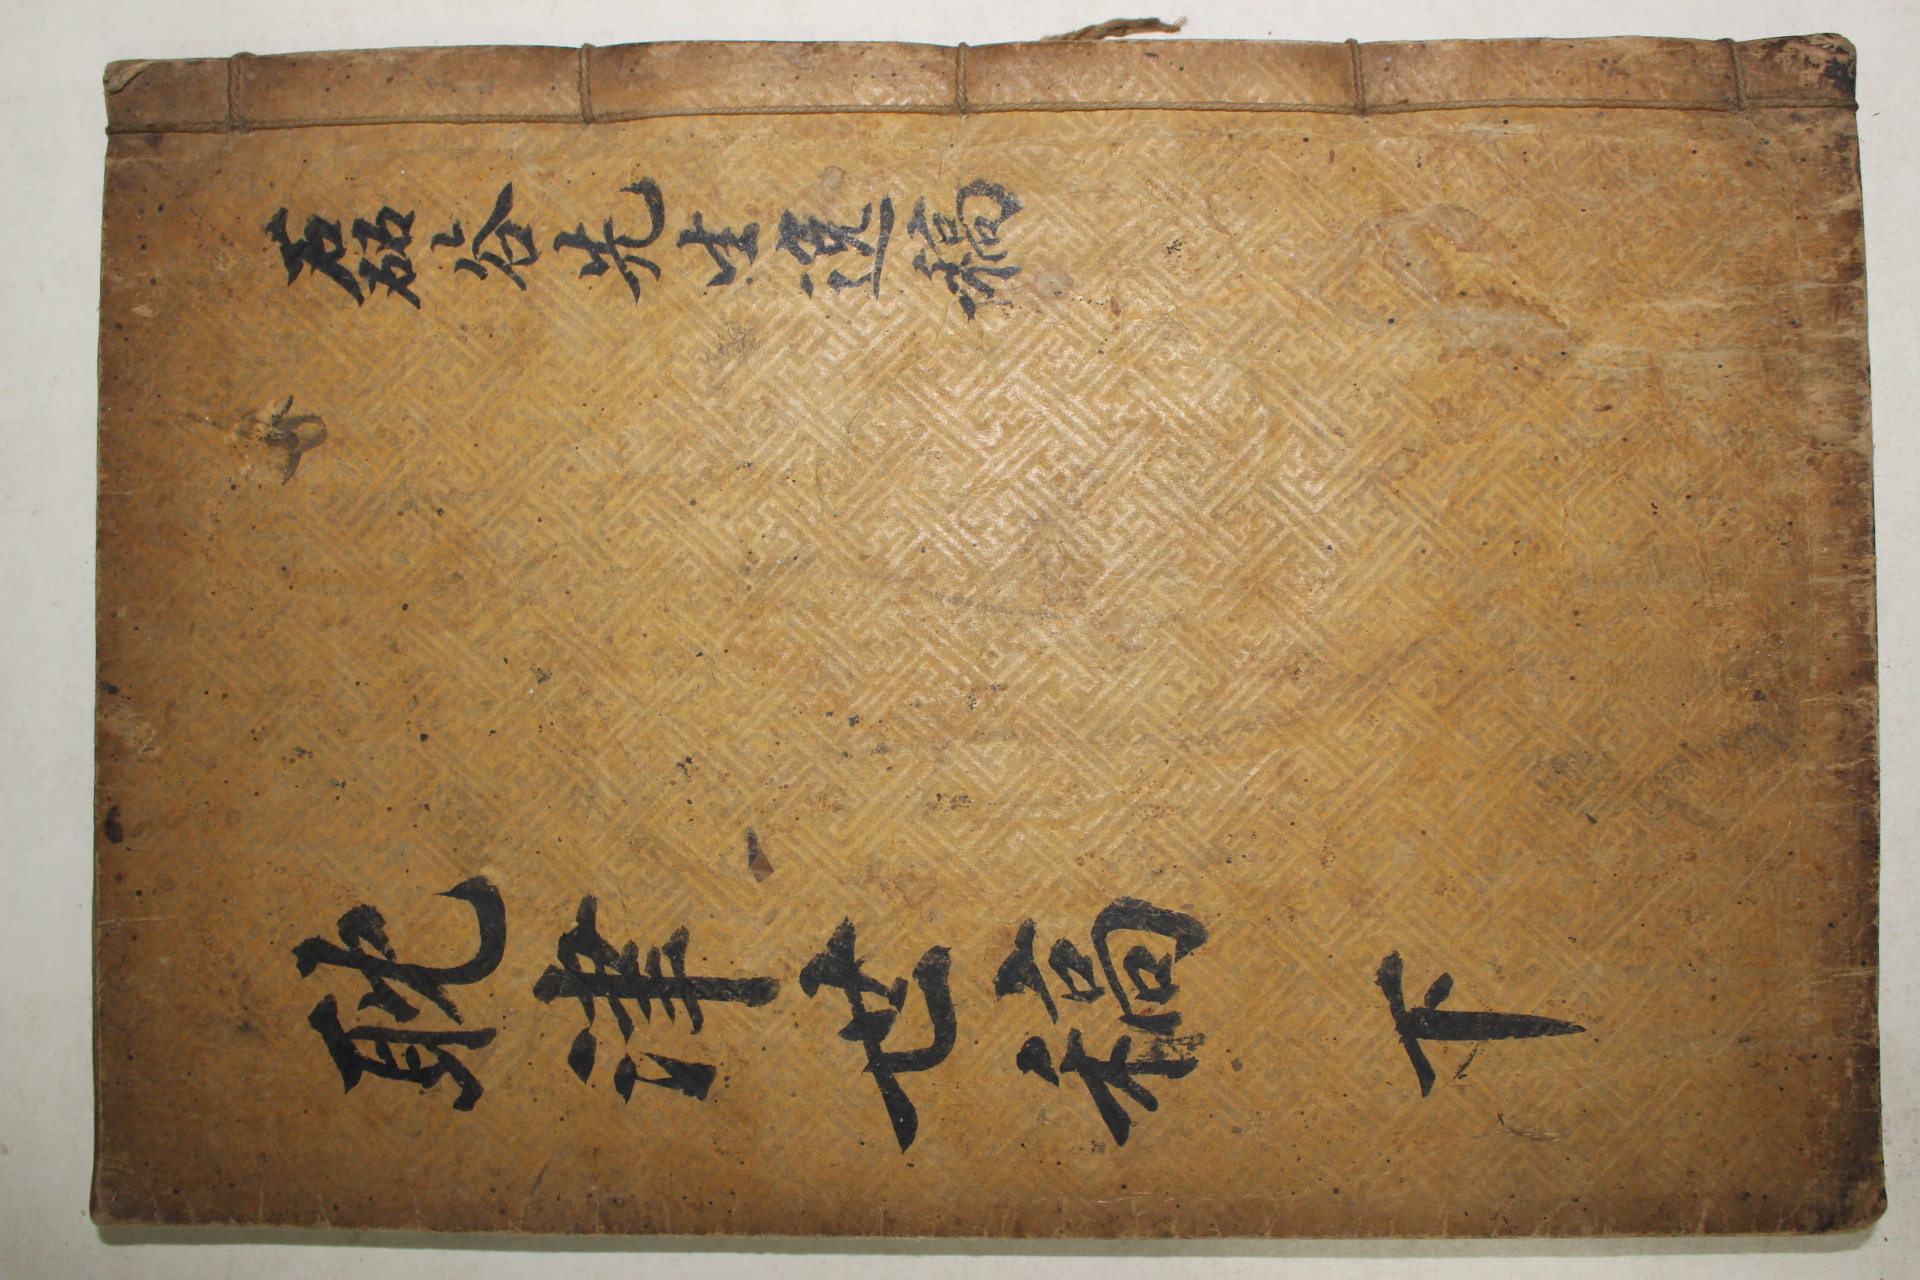 磊谷先生逸稿
耽津世稿 下